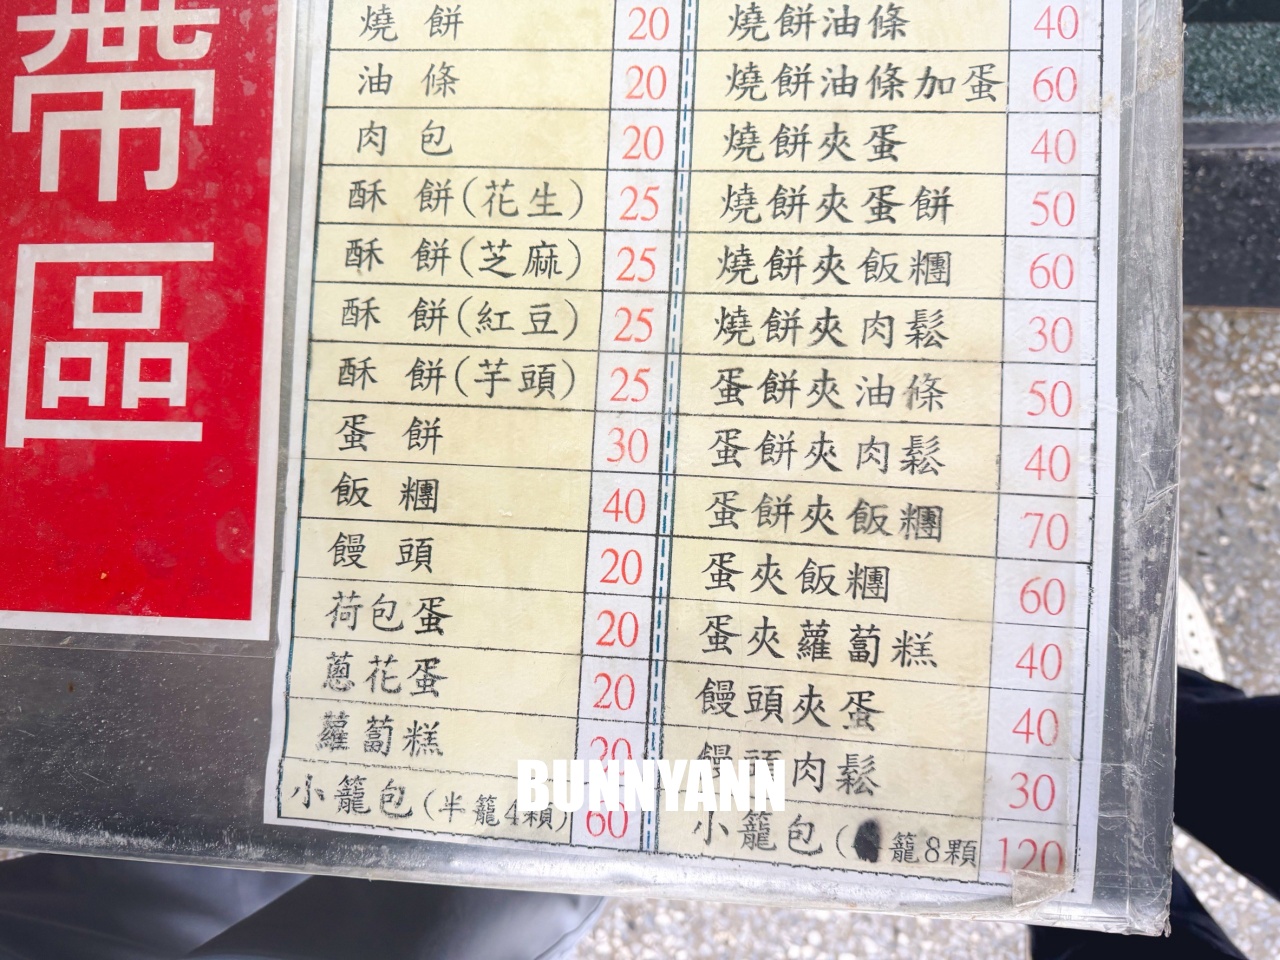 帶區
燒餅 20
油條 20
肉包 20
酥餅(花生) 25
酥餅(芝麻) 25
酥餅(紅豆) 25
酥餅(芋頭) 25
蛋餅 30
飯糰 40
饅頭 20
荷包蛋 20
蔥花蛋 20
蘿蔔糕 20
小籠包(半籠4顆) 60
燒餅油條 40
燒餅油條加蛋 60
燒餅夾蛋 40
燒餅夾蛋餅 50
燒餅夾飯糰 60
燒餅夾肉鬆 30
蛋餅夾油條 50
蛋餅夾肉鬆 40
蛋餅夾飯糰 70
蛋夾飯糰 60
蛋夾蘿蔔糕 40
饅頭夾蛋 40
饅頭肉鬆 30
小籠包(籠8顆 120
BUNNYANN